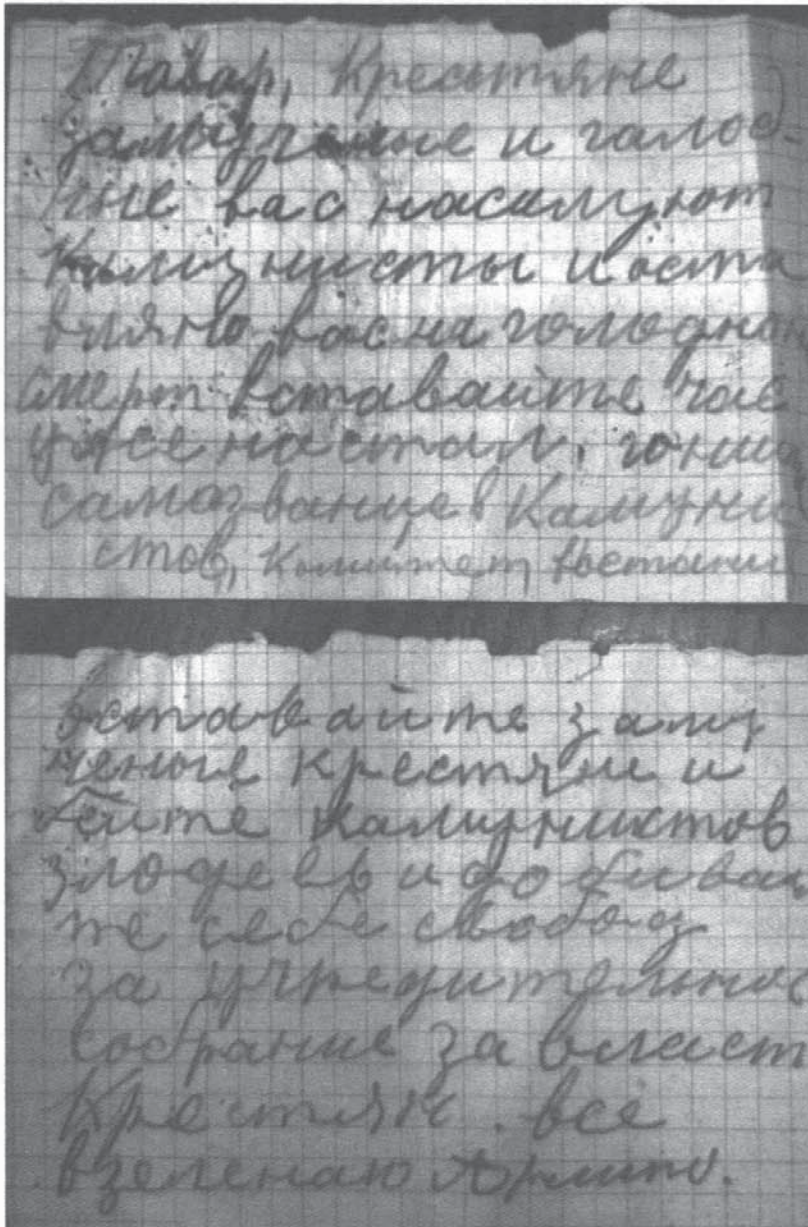 Товар, Крестяне
замученые и галод-
ные вас насилуют
Камунисты и оста
вляно вас на голодную
смерт вставайте час
уже настал, гонит
самозванцев Камуни
стов, Комитет востани
вставайте заму
ченые крестяне и
бейте камунистов
злодеев и добивай
те себе свободу
за учредительное
собрание за власт
Крестян. все
в зеленаю Армию.